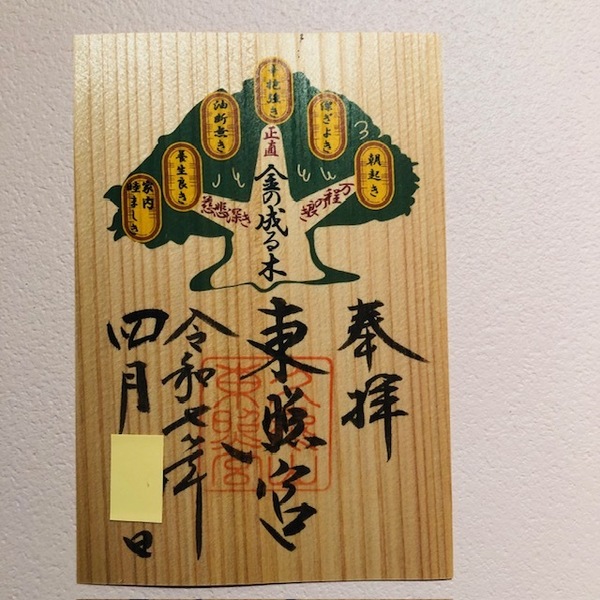 朝起き
稼ぎよき
辛抱強き
油断無き
養生良き
家内
睦ましき
正直
金の成る木
万程の
慈悲深き
奉拝
東照宮
令和七年
四月
日